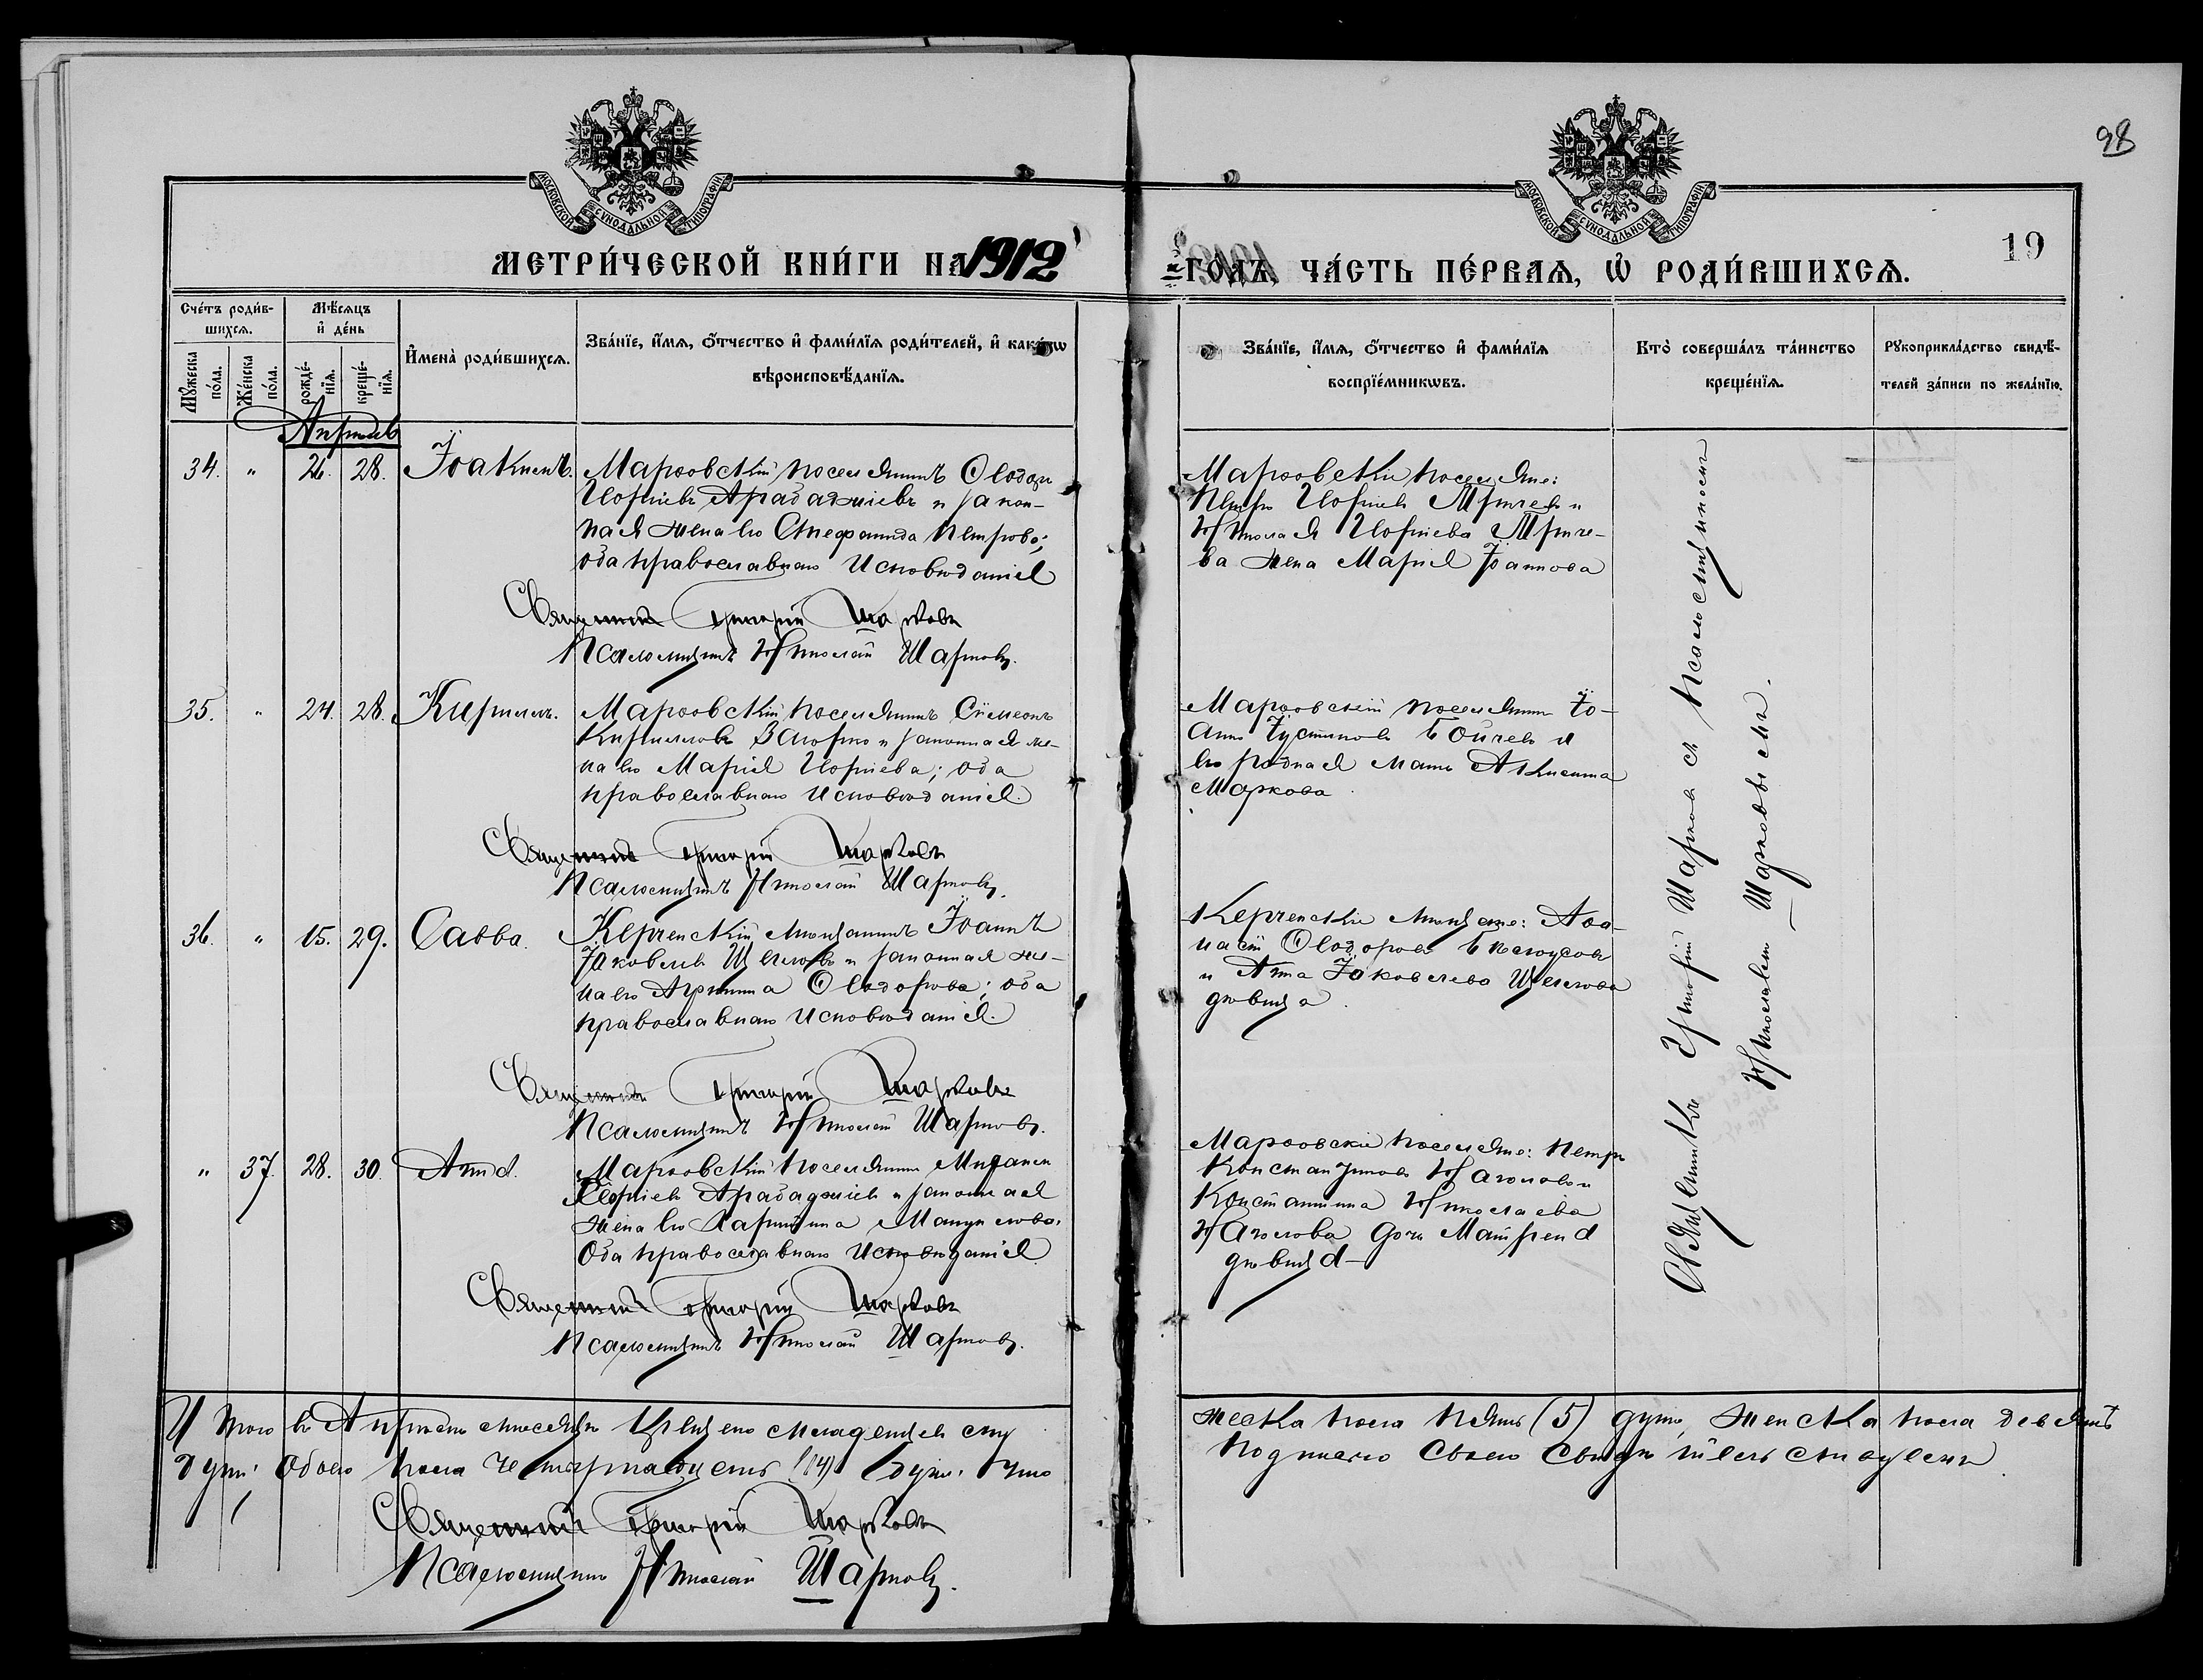 98
МОСКОВСКОЙ СѴНОДАЛЬНОЙ ТИПОГРАФІИ
МОСКОВСКОЙ СѴНОДАЛЬНОЙ ТИПОГРАФІИ
19
МЕТРИ́ЧЕСКОЙ КНИ́ГИ НА 1912
ГОДЪ, ЧА́СТЬ ПЕ́РВАЯ, Ѡ҆ РОДИ́ВШИХСЯ.
Сче́тъ роди́в-
шихся.
Мꙋжеска по́ла.
Же́нска по́ла.
Мѣ́сяцъ
и҆ де́нь
рожде́-
нїя.
креще́-
нїя.
И҆мена̀ роди́вшихся.
Зва́нїе, и҆́мя, ѻ҆́тчество и҆ фами́лїя роди́телей, и҆ како́гѡ
вѣроисповѣ́данїя.
Зва́нїе, и҆́мя, ѻ҆́тчество и҆ фами́лїя
воспрїе́мникѡвъ.
Кто̀ соверша́лъ та́инство
креще́нїя.
Рꙋкоприкла́дство свидѣ́-
телей за́писи по жела́нїю.
Апрѣль
34. " 26. 28. Іоакимъ.
Марфовскій поселянинъ Ѳеодоръ
Георгіевъ Арабаджіевъ и закон-
ная жена его Стефанида Петрова;
оба православнаго исповѣданія
Священникъ Григорій Шарковъ
Псаломщикъ Николай Шарковъ.
Марфовскіе поселяне:
Петръ Георгіевъ
Николая Георгіева
ва жена Марія Іоаннова
35. " 24. 28. Кириллъ.
Марфовскій поселянинъ Сѵмеонъ
Кирилловъ Загорко и законная же-
на его Марія Георгіева; оба
православнаго исповѣданія.
Священникъ Григорій Шарковъ
Псаломщикъ Николай Шарковъ.
Марфовскій поселянинъ Іо-
аннъ Іустиновъ Бойчевъ и
его родная мать
Маркова
36. " 15. 29. Савва.
Керченскій мѣщанинъ Іоаннъ
Іаковлевъ Щегловъ и законная же-
на его Агриппина Ѳеодорова; оба
православнаго исповѣданія.
Священникъ Григорій Шарковъ
Псаломщикъ Николай Шарковъ.
Керченскіе мѣщане: Аѳа-
насій Ѳеодоровъ Бѣлоусовъ
и Анна Іаковлева Щеглова
дѣвица.
" 37. 28. 30. Анна.
Марфовскій поселянинъ Михаилъ
Георгіевъ Арабаджіевъ и законная
жена его Харитина Мануилова.
Оба православнаго исповѣданія
Священникъ Григорій Шарковъ
Псаломщикъ Николай Шарковъ.
Марфовскіе поселяне: Петръ
Константиновъ
Константина Николаева
дочь Матрена
дѣвица
Священникъ Григорій Шарковъ съ псаломщикомъ
Николаемъ Шарковымъ.
Итого въ Апрѣлѣ мѣсяцѣ крещено младенцевъ муж
жеска пола пять (5) душъ, женска пола девять
душъ; обоего пола четырнадцать (14) душъ. Что
подписью своею свидѣтельствуемъ
Священникъ Григорій Шарковъ
Псаломщикъ Николай Шарковъ.